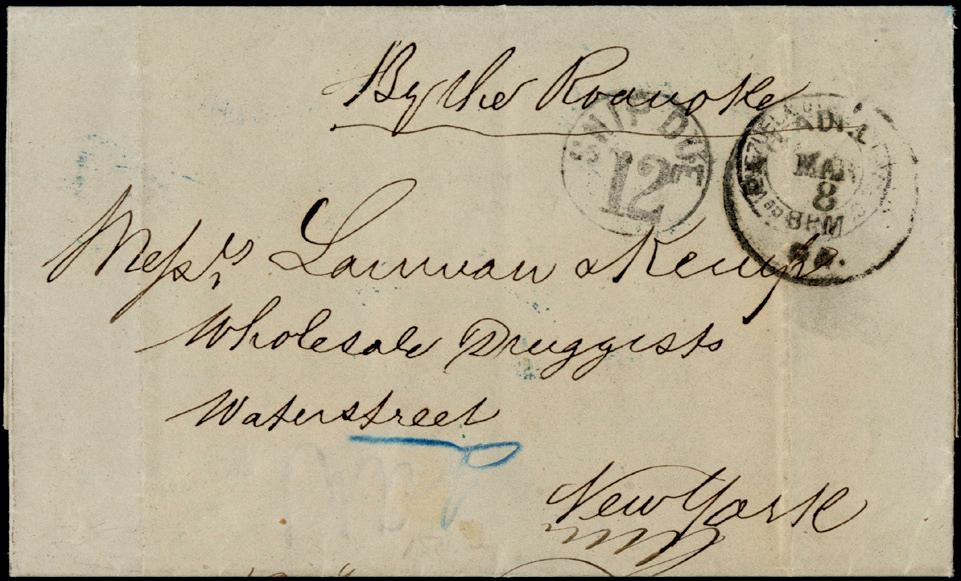 By the Roanoke
SHIP DUE
12
MAR
8
8 PM
Messrs Lanman & Kemp
Wholesale Druggists
Waterstreet
New York